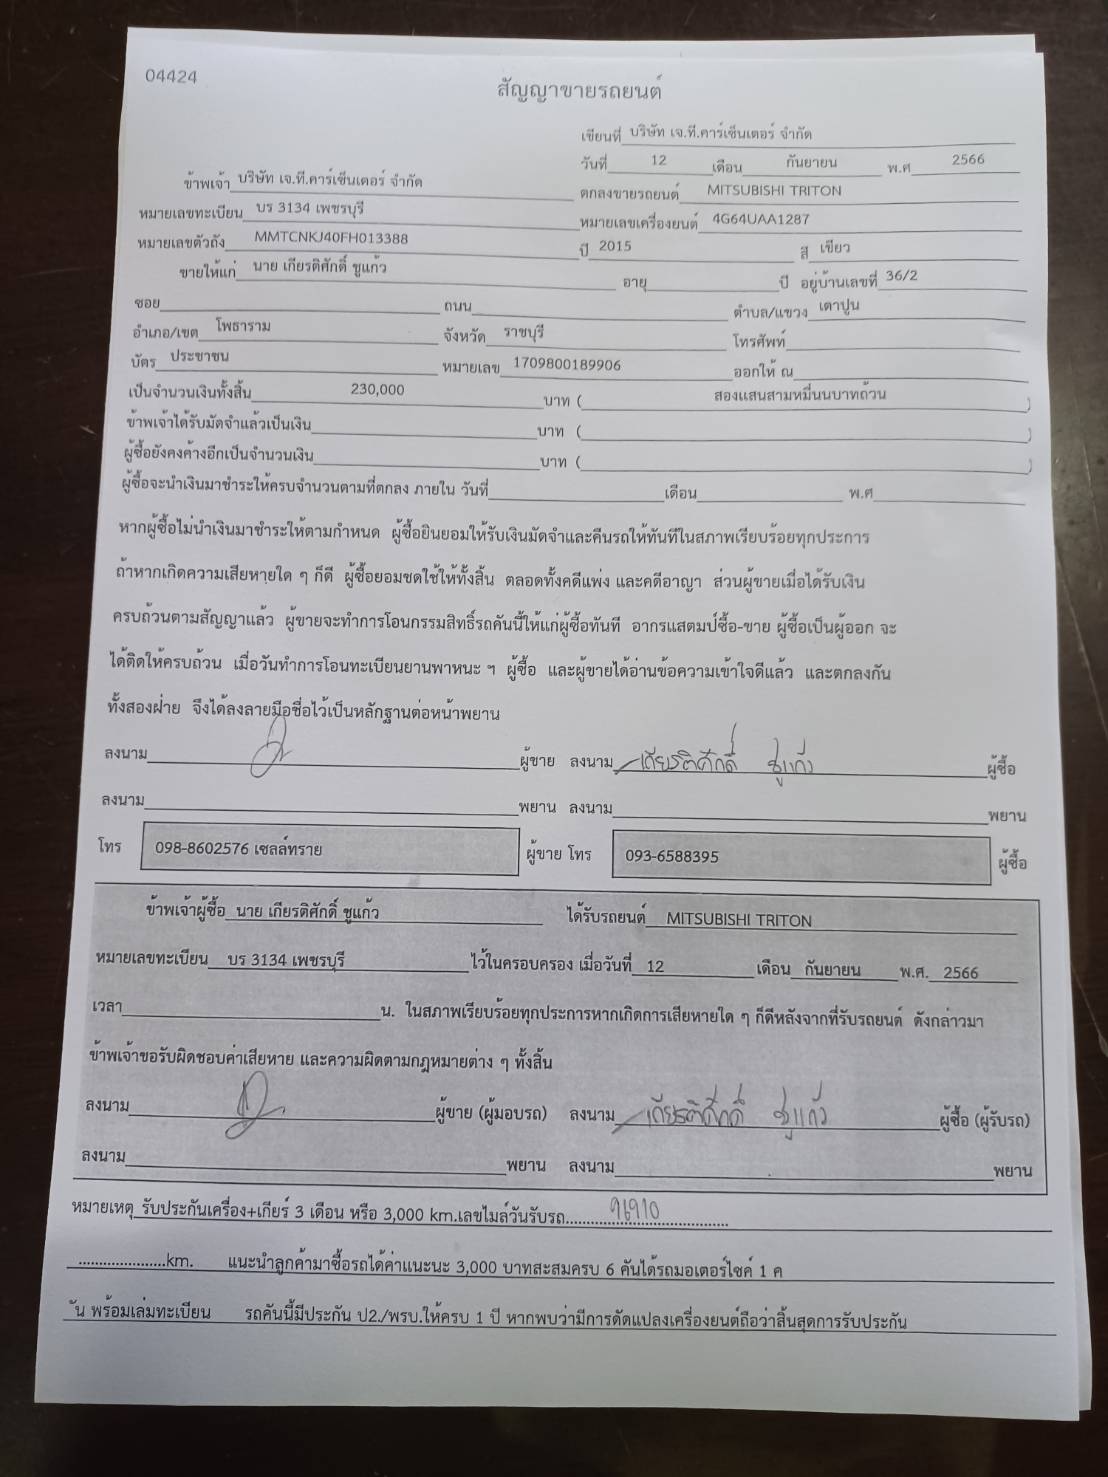 04424
สัญญาขายรถยนต์
เขียนที่ บริษัท เจ.ที.คาร์เซ็นเตอร์ จำกัด
วันที่ 12 เดือน กันยายน พ.ศ 2566
ข้าพเจ้า บริษัท เจ.ที.คาร์เซ็นเตอร์ จำกัด ตกลงขายรถยนต์ MITSUBISHI TRITON
หมายเลขทะเบียน บร 3134 เพชรบุรี หมายเลขเครื่องยนต์ 4G64UAA1287
หมายเลขตัวถัง MMTCNKJ40FH013388 ปี 2015 สี เขียว
ขายให้แก่ นาย เกียรติศักดิ์ ชูแก้ว อายุ ปี อยู่บ้านเลขที่ 36/2
ซอย ถนน ตำบล/แขวง เตาปูน
อำเภอ/เขต โพธาราม จังหวัด ราชบุรี โทรศัพท์
บัตร ประชาชน หมายเลข 1709800189906 ออกให้ ณ
เป็นจำนวนเงินทั้งสิ้น 230,000 บาท ( สองแสนสามหมื่นนบาทถ้วน )
ข้าพเจ้าได้รับมัดจำแล้วเป็นเงิน บาท ( )
ผู้ซื้อยังคงค้างอีกเป็นจำนวนเงิน บาท ( )
ผู้ซื้อจะนำเงินมาชำระให้ครบจำนวนตามที่ตกลง ภายใน วันที่ เดือน พ.ศ
หากผู้ซื้อไม่นำเงินมาชำระให้ตามกำหนด ผู้ซื้อยินยอมให้รับเงินมัดจำและคืนรถให้ทันทีในสภาพเรียบร้อยทุกประการ
ถ้าหากเกิดความเสียหายใด ๆ ก็ดี ผู้ซื้อยอมชดใช้ให้ทั้งสิ้น ตลอดทั้งคดีแพ่ง และคดีอาญา ส่วนผู้ขายเมื่อได้รับเงิน
ครบถ้วนตามสัญญาแล้ว ผู้ขายจะทำการโอนกรรมสิทธิ์รถคันนี้ให้แก่ผู้ซื้อทันที อากรแสตมป์ซื้อ-ขาย ผู้ซื้อเป็นผู้ออก จะ
ได้ติดให้ครบถ้วน เมื่อวันทำการโอนทะเบียนยานพาหนะ ฯ ผู้ซื้อ และผู้ขายได้อ่านข้อความเข้าใจดีแล้ว และตกลงกัน
ทั้งสองฝ่าย จึงได้ลงลายมือชื่อไว้เป็นหลักฐานต่อหน้าพยาน
ลงนาม ผู้ขาย ลงนาม เกียรติศักดิ์ ชูแก้ว ผู้ซื้อ
ลงนาม พยาน ลงนาม พยาน
โทร 098-8602576 เซลล์ทราย ผู้ขาย โทร 093-6588395 ผู้ซื้อ
ข้าพเจ้าผู้ซื้อ นาย เกียรติศักดิ์ ชูแก้ว ได้รับรถยนต์ MITSUBISHI TRITON
หมายเลขทะเบียน บร 3134 เพชรบุรี ไว้ในครอบครอง เมื่อวันที่ 12 เดือน กันยายน พ.ศ. 2566
เวลา น. ในสภาพเรียบร้อยทุกประการหากเกิดการเสียหายใด ๆ ก็ดีหลังจากที่รับรถยนต์ ดังกล่าวมา
ข้าพเจ้าขอรับผิดชอบค่าเสียหาย และความผิดตามกฎหมายต่าง ๆ ทั้งสิ้น
ลงนาม ผู้ขาย (ผู้มอบรถ) ลงนาม เกียรติศักดิ์ ชูแก้ว ผู้ซื้อ (ผู้รับรถ)
ลงนาม พยาน ลงนาม พยาน
หมายเหตุ รับประกันเครื่อง+เกียร์ 3 เดือน หรือ 3,000 km.เลขไมล์วันรับรถ.......96910.......
......................km. แนะนำลูกค้ามาซื้อรถได้ค่าแนะนะ 3,000 บาทสะสมครบ 6 คันได้รถมอเตอร์ไซค์ 1 ค
ัน พร้อมเล่มทะเบียน รถคันนี้มีประกัน ป2./พรบ.ให้ครบ 1 ปี หากพบว่ามีการดัดแปลงเครื่องยนต์ถือว่าสิ้นสุดการรับประกัน